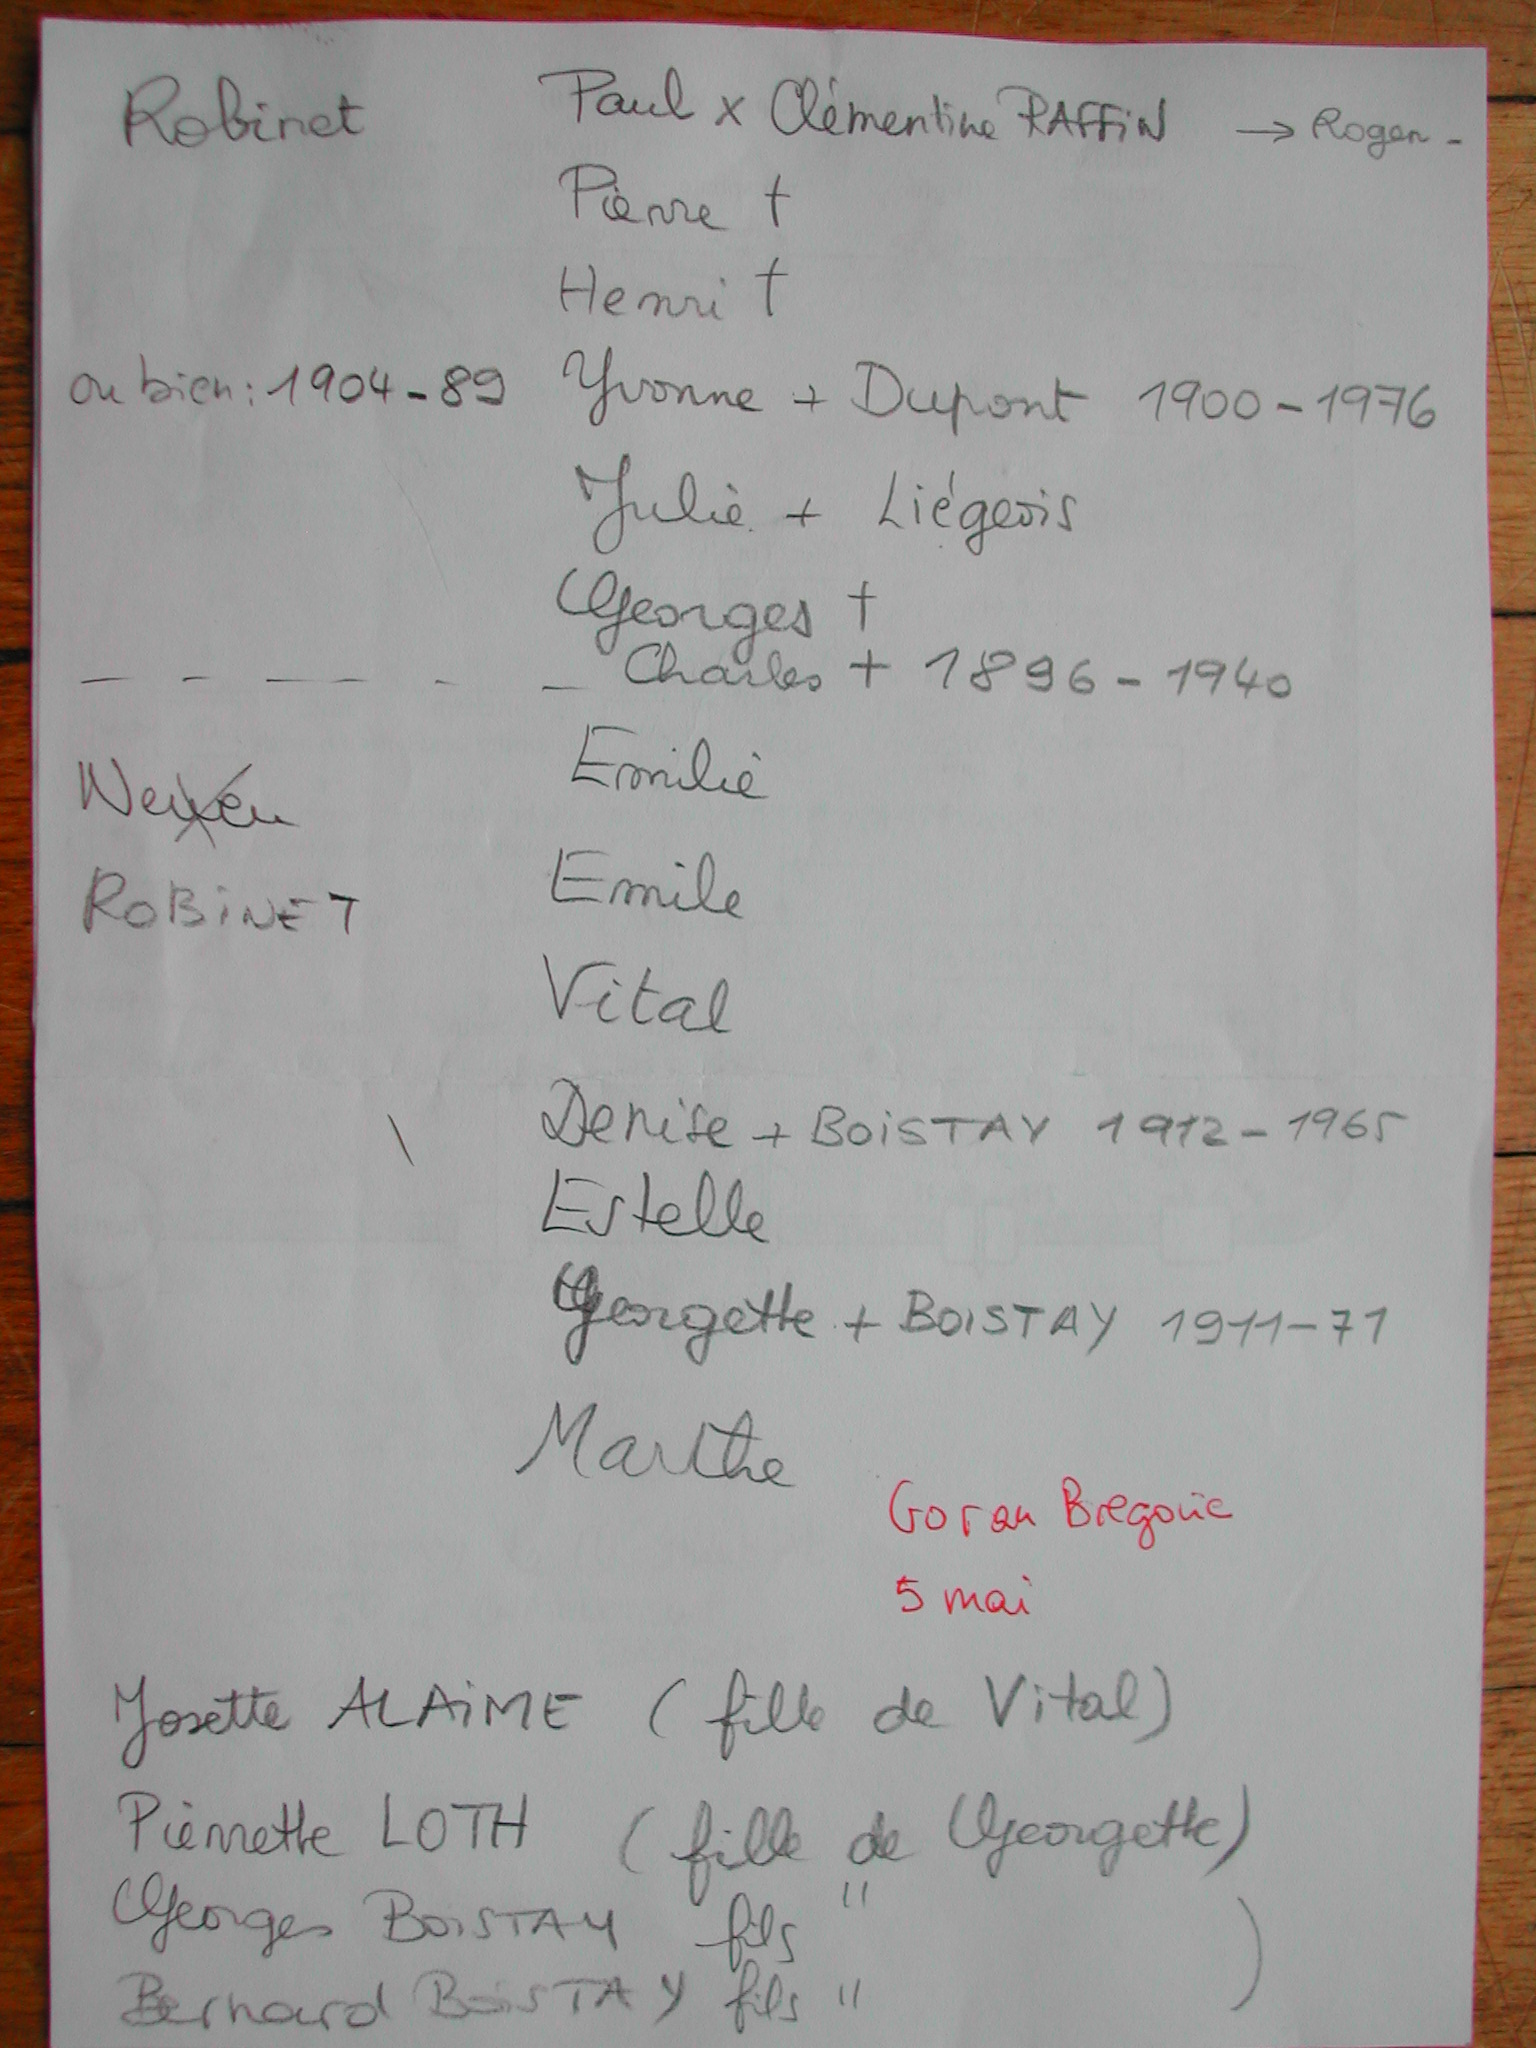 Robinet Paul x Clémentine RAFFiN → Roger -
Pierre †
Henri †
ou bien : 1904-89 Yvonne + Dupont 1900-1976
Julie + Liégeois
Georges †
Charles + 1896-1940
Emilie
Emile
ROBiNET
Vital
Denise + BOiSTAY 1912-1965
Estelle
Georgette + BOISTAY 1911-71
Marthe
Goran Bregovic
5 mai
Josette ALAiME (fille de Vital)
Pierrette LOTH (fille de Georgette)
Georges BOISTAY fils " )
Bernard BOiSTAY fils "